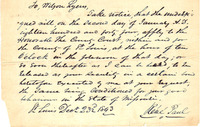 To Wilson Lyers,
Take notice that the undersigned
will on the second day of January A.D.
eighteen hundred and forty four, apply to the
Honorable the County Court, within and for
the County of St. Louis, at the hour of ten
o'clock on the forenoon of that day, or
as soon thereafter as I can be heard to be
released as your security in a certain
bond executed by one at your request,
the same being conditioned for your good
behaviour in the State of Missouri.
St. Louis Decr 23d 1843
René Paul